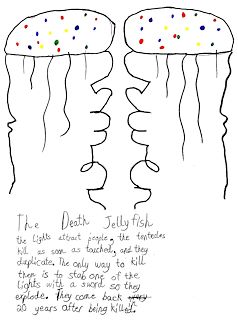 The Death Jellyfish
the Lights attract people, the tentacles
kill as soon as touched, and they
duplicate. The only way to kill
them is to stab one of the
Lights with a sword so they
explode. They come back
20 years after being killed.